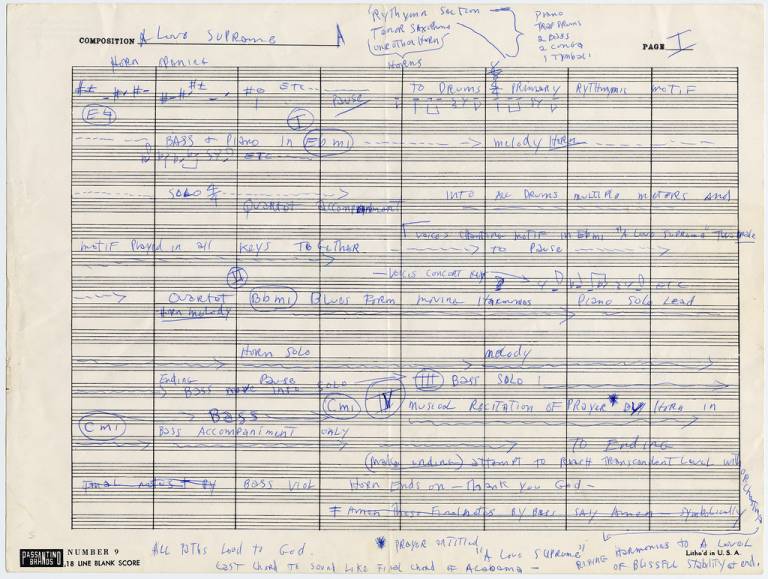 COMPOSITION A LOVE SUPREME
Rythymn Section —
Tenor Saxophone
one other horn
Horns
Piano
Trap Drums
2 Bass
2 Conga
1 Tymbali
PAGE I
Horn opening
ETC Pause TO DRUMS 4/4 PRIMARY RYTHYMIC MOTIF
E4 I
BASS + Piano in Ebmi melody Horn
ETC
SOLO 4/4 INTO ALL DRUMS MULTIPLE meters AND
Quartet Accompaniment
Voices chanting motif in Ebmi "A Love Supreme" Then
motif Played in all Keys TOGETHER TO Pause
VOICES CONCERT KEY ETC
II
Quartet Bbmi Blues Form moving Harmonies Piano Solo Lead
Horn melody
Horn Solo melody
Ending Pause SOLO III BASS SOLO
Bass move into
Cmi IV Musical Recitation OF PRAYER BY Horn in
Bass
Cmi Bass ACCOMPANIMENT ONLY
TO Ending
ending) attempt to Reach Transcendent Level with
Final notes + By Bass Viol Horn Ends on — Thank you God —
Amen These Final notes By Bass SAY Amen — Symbolically
PASSANTINO BRANDS NUMBER 9
18 LINE BLANK SCORE
Litho'd in U.S.A.
ALL Paths Lead to God. * PRAYER entitled "A Love SUPREME" Harmonies to A Level
Last Chord to Sound Like Final Chord of Alabama — OF BLISSFUL Stability at end.